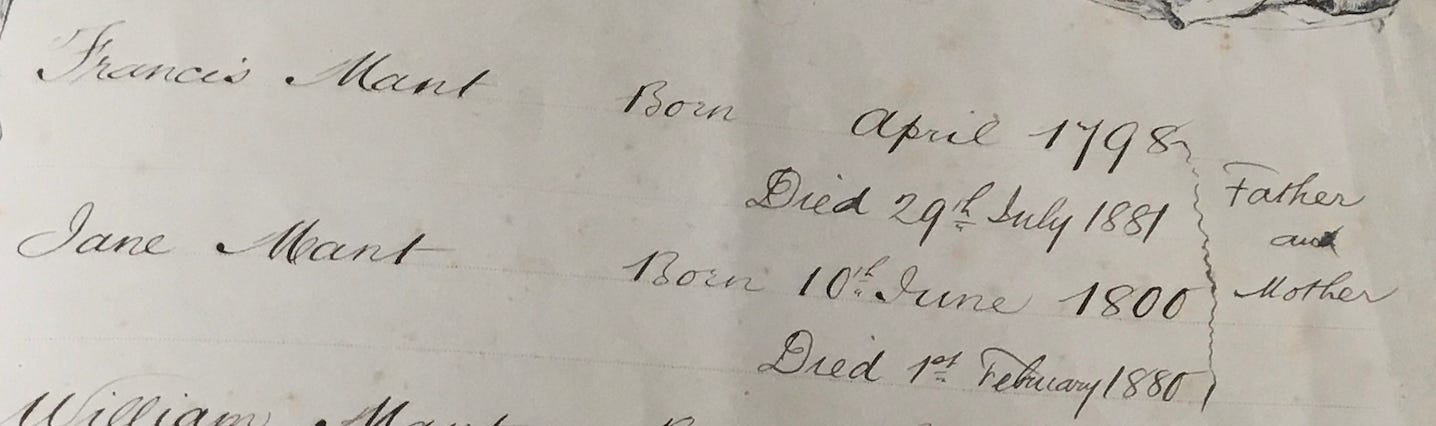 Francis Mant Born April 1798
Died 29th July 1881
Father
and
Mother
Jane Mant Born 10th June 1800
Died 1st February 1880
William Mant